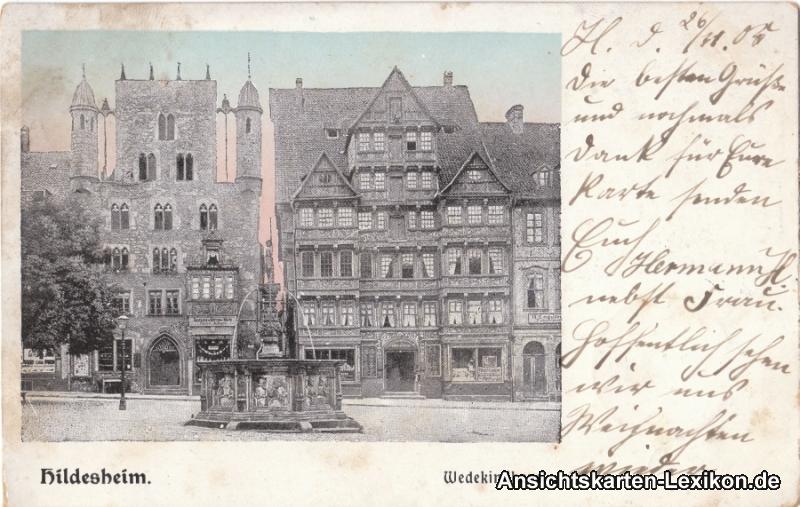 H. d. 26/11. 05
Die besten Grüße
und nochmals
Dank für Eure
Karte senden
Euch
Hermann
nebst Frau.
Hoffentlich sehen
wir uns
Weihnachten
wieder
Hildesheim.
Ansichtskarten-Lexikon.de